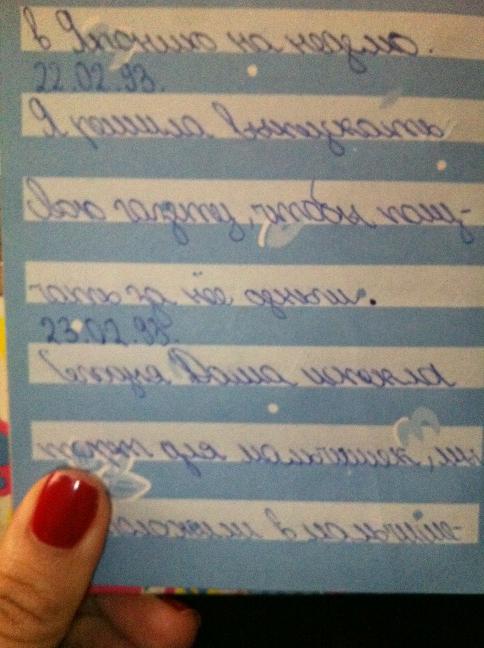 в Японию на неделю.
22.02.93.
Я решила выпускать
свою газету, чтобы полу-
чать за неё деньги.
23.02.93.
Сегодня Даша испекла
торт для мальчишек, мы
положили в